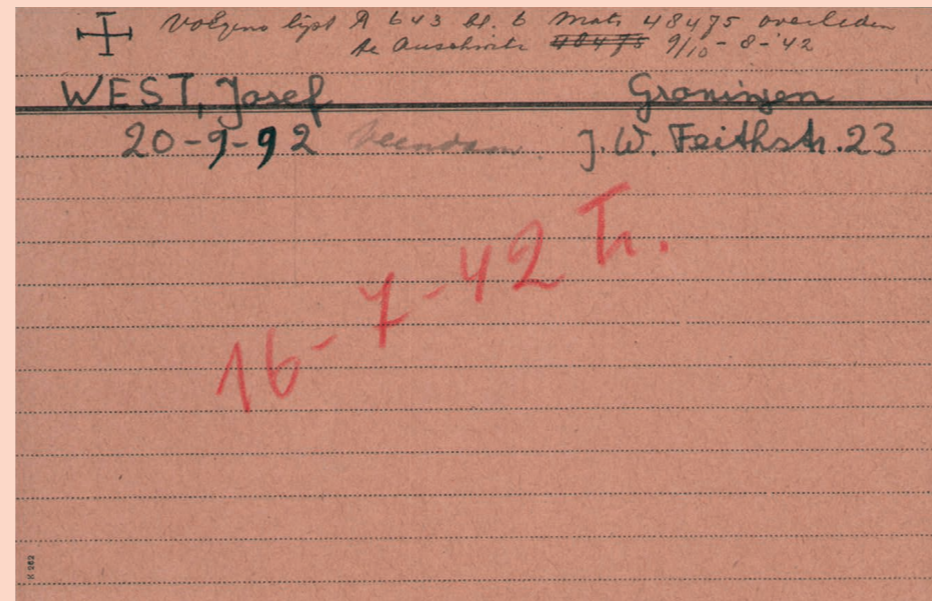 Volgens lijst A 643 bl. 6 Mats 48475 overleden
te Auschwitz 48475 9/10-8-'42
WEST, Josef Groningen
20-9-92 Veendam. J.W. Feithstr. 23
16-7-42 Tr.
K 963